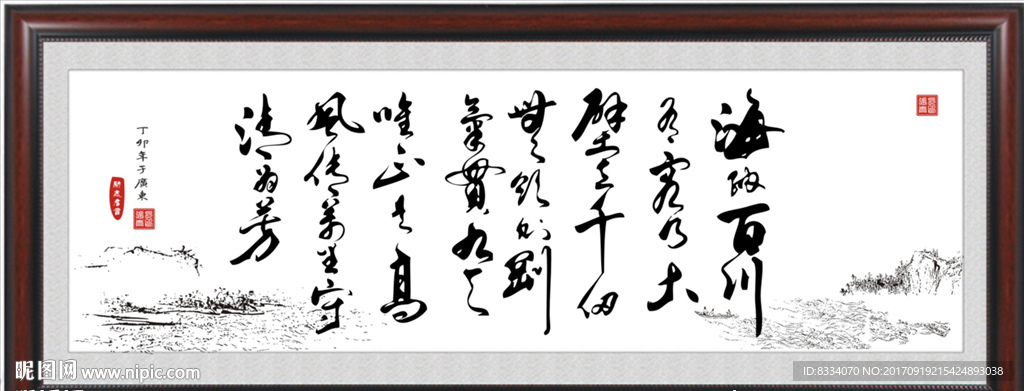 海納百川
有容乃大
壁立千仞
無欲則剛
氣貫九天
唯正是高
風傳萬里守
清為芳
丁卯年于廣東
昵图网 www.nipic.com
ID:8334070 NO:20170919215424893038